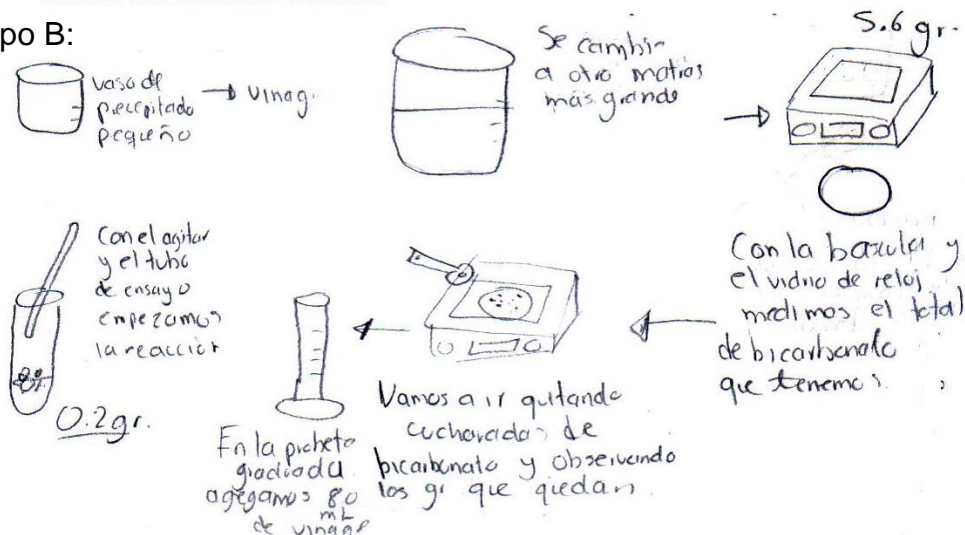 po B:
vaso de
precipitado
pequeño
→ vinag.
Se cambi-
a otro matraz
más grande
5.6 gr.
Con la bascula y
el vidrio de reloj
medimos el total
de bicarbonato
que tenemos
Vamos a ir quitando
cucharadas de
bicarbonato y observando
los gr que quedan
En la
graduada
agegamos 80
mL
de vinagre
Con el agitar
y el tubo
de ensayo
empezamos
la reacción
0.2gr.